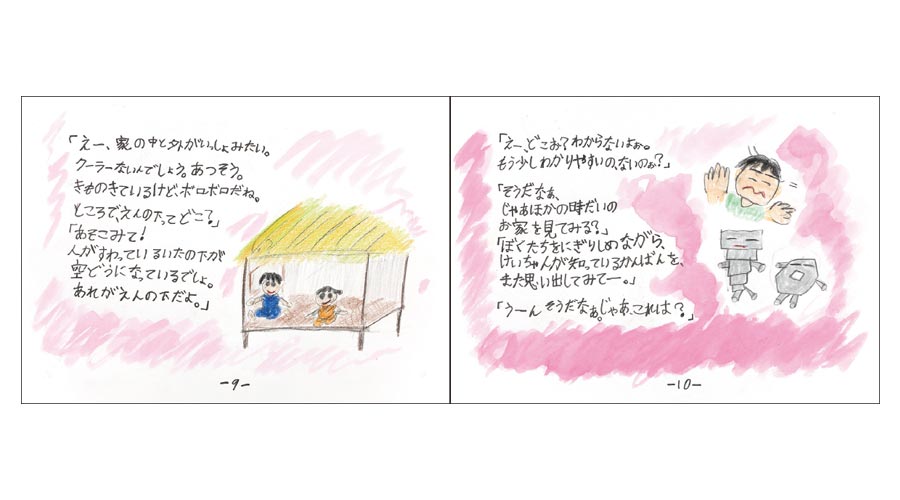 「えー、家の中と外がいっしょみたい。
クーラーないんでしょう。あっつそう。
きものきているけど、ボロボロだね。
ところで、えんの下ってどこ?」
「あそこみて!
人がすわっているいたの下が
空どうになっているでしょ。
あれがえんの下だよ。」
-9-
「えー、どこぉ?わからないよぉ。
もう少しわかりやすいの、ないのぉ?」
「そうだなぁ、
じゃあほかの時だいの
お家を見てみる?」
「ぼくたちをにぎりしめながら、
けいちゃんが知っているかんばんを、
また思い出してみてー。」
「うーん そうだなぁ。じゃあ、これは?」
-10-